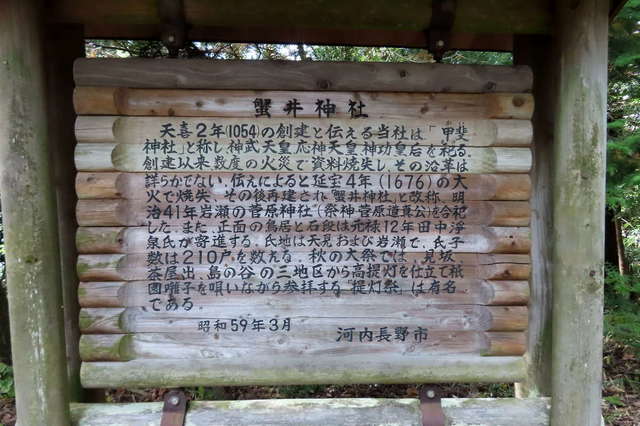 蟹井神社
天喜2年(1054)の創建と伝える当社は「甲斐
神社」と称し神武天皇応神天皇神功皇后を祀る.
創建以来数度の火災で資料焼失し,その沿革は
詳らかでない.伝えによると延宝4年(1676)の大
火で焼失,その後再建され"蟹井神社"と改称.明
治41年岩瀬の菅原神社(祭神菅原道真公)を合祀
した.また,正面の鳥居と石段は元禄12年田中浄
泉氏が寄進する.氏地は天見および岩瀬で,氏子
数は210戸を数える.秋の大祭では,見坂
茶屋出,島の谷の三地区から高提灯を仕立て祇
園囃子を唄いながら参拝する"提灯祭"は有名
である.
昭和59年3月 河内長野市